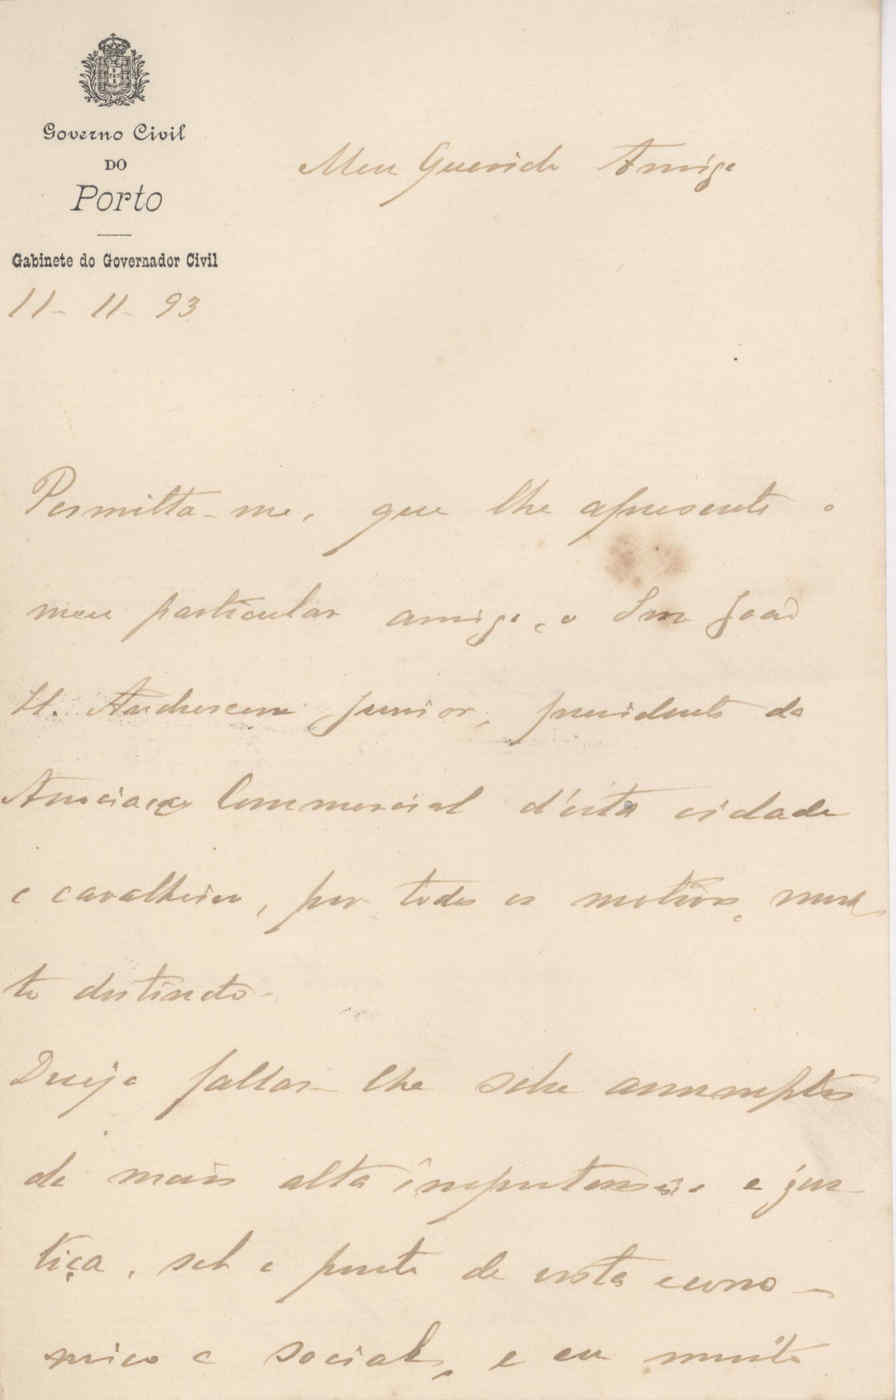 Governo Civil
DO
Porto
Gabinete do Governador Civil
11-11-93
Meu Querido Amigo
Permitta-me, que lhe apresente o
meu particular amigo, o Snr João
H. Andresen Junior, presidente da
Associação Commercial d'esta cidade
e cavalheiro, por todos os motivos, mui-
to distincto-
Deseja fallar-lhe sobre assumptos
da mais alta importancia e jus-
tiça, sob o ponto de vista econo-
mico e social, e eu muito